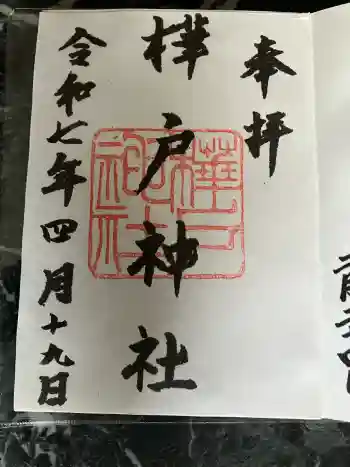 奉拝
樺戸神社
樺戸神社
令和七年四月十九日